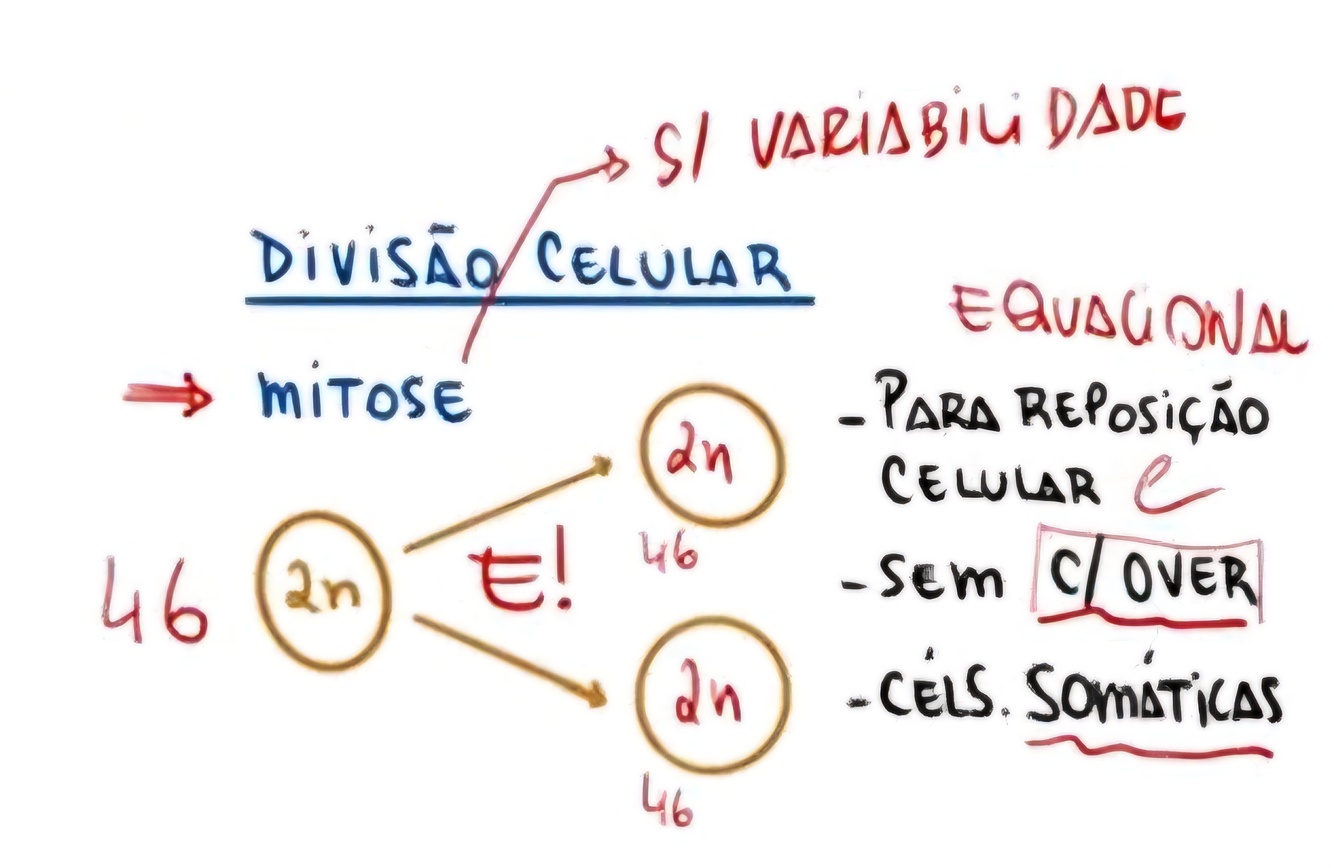 S/ VARIABILIDADE
DIVISÃO CELULAR
MITOSE
EQUACIONAL
- PARA REPOSIÇÃO
CELULAR
- SEM C/ OVER
- CÉLS. SOMÁTICAS
46
2n
E!
2n
46
2n
46